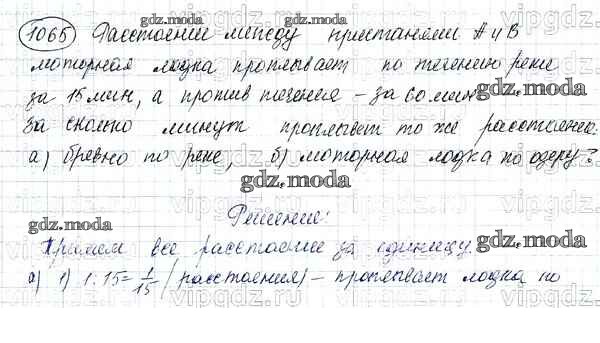 1065 Расстояние между пристанями А и В
моторная лодка проплывает по течению реки
за 15 мин, а против течения – за 60 мин.
За сколько минут проплывет то же расстояние:
а) бревно по реке, б) моторная лодка по озеру?
Решение:
Примем все расстояние за единицу.
а) 1) 1:15 = 1/15 (расстояния) – проплывает лодка по
gdz.moda
gdz.moda
gdz.moda
gdz.moda
gdz.moda
gdz.moda
gdz.moda
gdz.moda